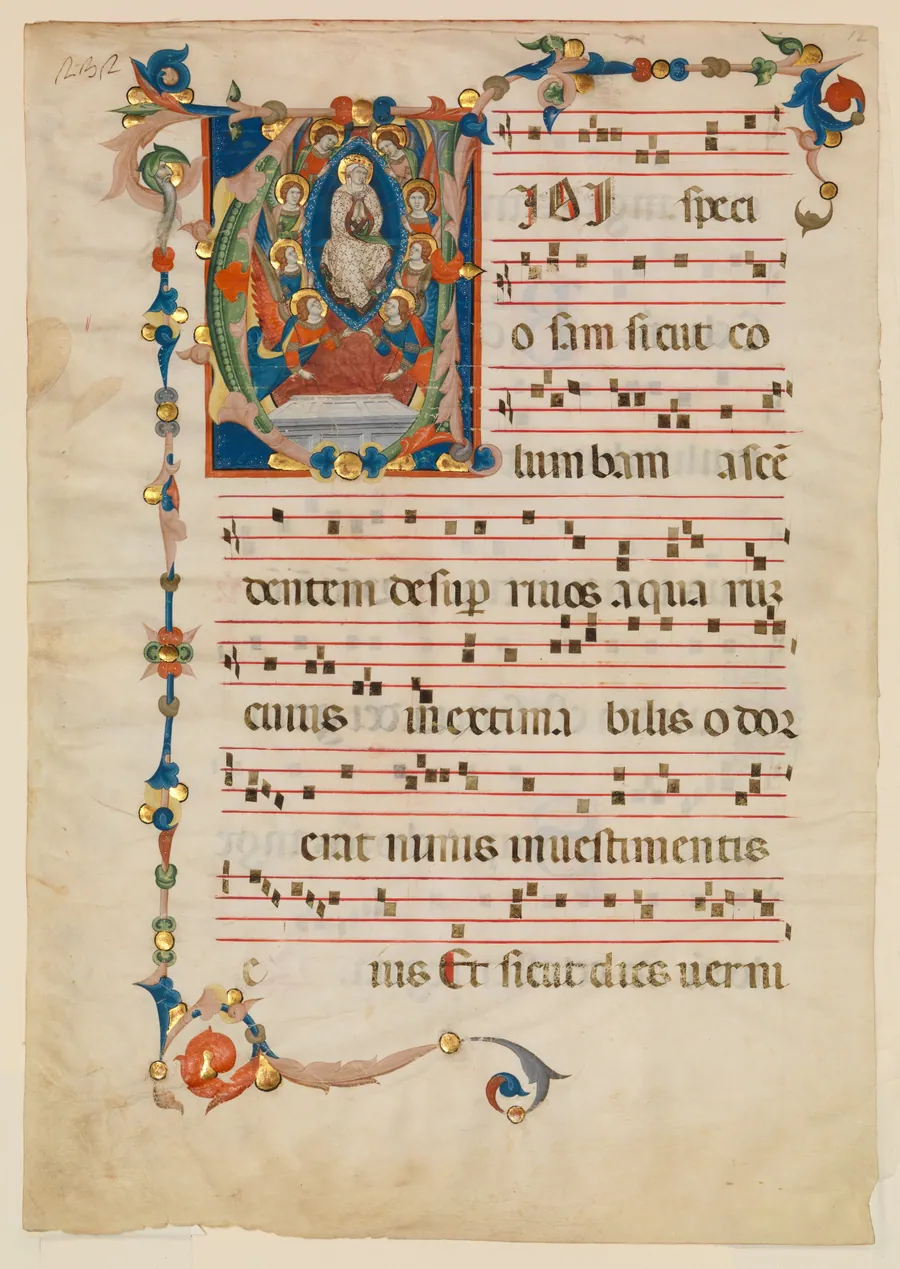 VIDI speci
o sam sicut co
lum bam ascē
dentem desup riuos aqua ruz
cuius in extima bilis odor
erat nimis inuestimentis
e ius Et sicut dies uerni